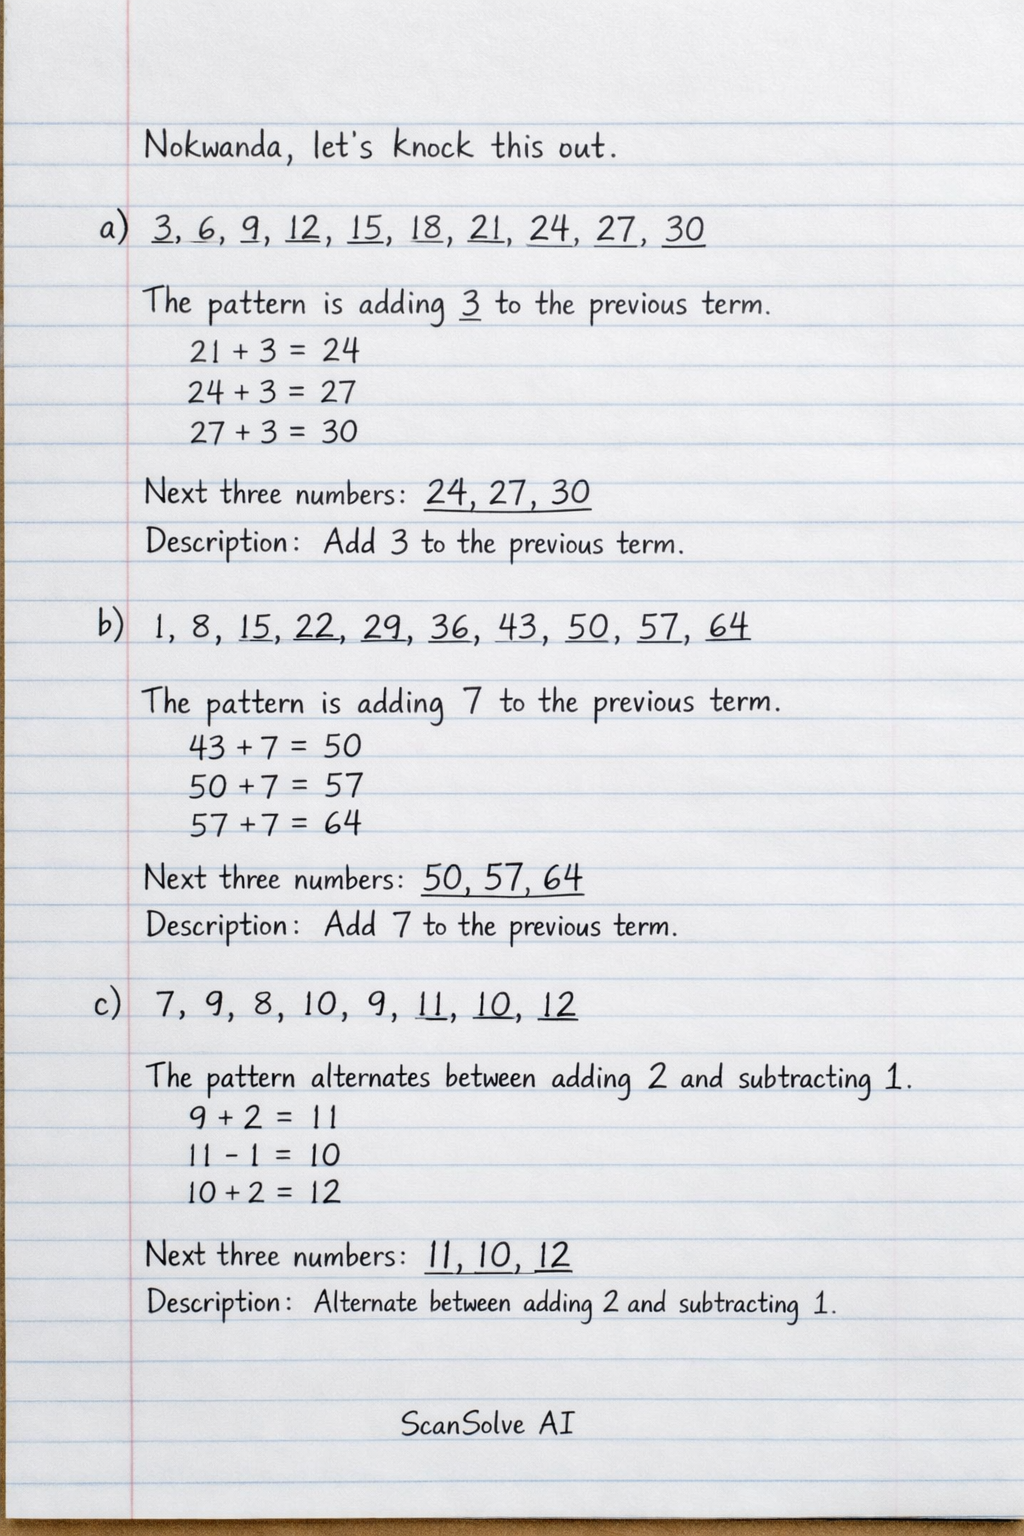 Nokwanda, let's knock this out.
a) 3, 6, 9, 12, 15, 18, 21, 24, 27, 30
The pattern is adding 3 to the previous term.
21 + 3 = 24
24 + 3 = 27
27 + 3 = 30
Next three numbers: 24, 27, 30
Description: Add 3 to the previous term.
b) 1, 8, 15, 22, 29, 36, 43, 50, 57, 64
The pattern is adding 7 to the previous term.
43 + 7 = 50
50 + 7 = 57
57 + 7 = 64
Next three numbers: 50, 57, 64
Description: Add 7 to the previous term.
c) 7, 9, 8, 10, 9, 11, 10, 12
The pattern alternates between adding 2 and subtracting 1.
9 + 2 = 11
11 - 1 = 10
10 + 2 = 12
Next three numbers: 11, 10, 12
Description: Alternate between adding 2 and subtracting 1.
ScanSolve AI